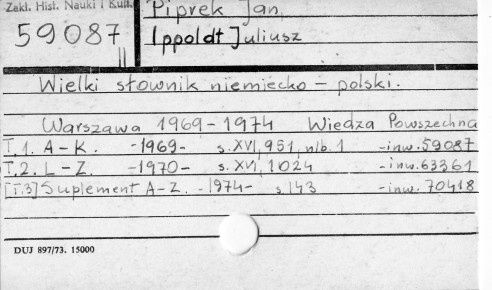 Zakł. Hist. Nauki i Kult.
59087
Piprek Jan,
Ippoldt Juliusz
Wielki słownik niemiecko – polski.
Warszawa 1969–1974 Wiedza Powszechna
T.1. A – K. -1969- s. XVI, 951, nlb. 1 -inw. 59087
T.2. L – Z. -1970- s. XVI, 1024 -inw. 63361
[T.3] Suplement A – Z. -1974- s. 143 -inw. 70418
DUJ 897/73. 15000